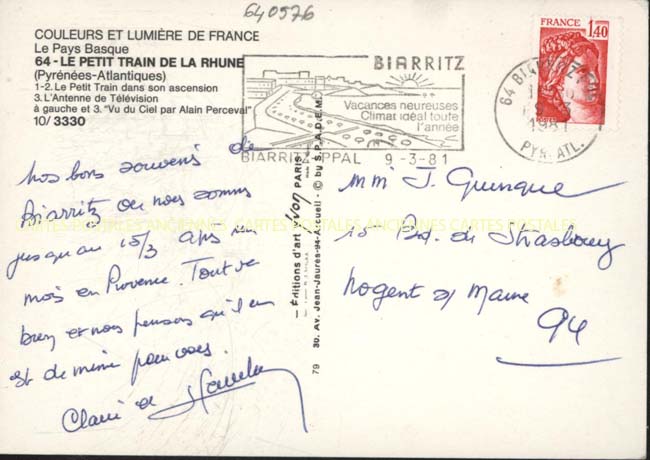 640576
COULEURS ET LUMIÈRE DE FRANCE
Le Pays Basque
64 - LE PETIT TRAIN DE LA RHUNE
(Pyrénées-Atlantiques)
1-2. Le Petit Train dans son ascension
3. L'Antenne de Télévision
à gauche et 3. "Vu du Ciel par Alain Perceval"
10/3330
BIARRITZ
Vacances heureuses
Climat idéal toute
l'année
BIARRITZ PPAL 9-3-81
FRANCE
1,40
64 BIARRITZ
1981
PYR. ATL.
Nos bons souvenirs de
Biarritz où nous sommes
jusqu'au 15/3 après un
mois en Provence. Tout va
bien et nous pensons qu'il en
est de même pour vous.
Claire et
Éditions d'art Yvon PARIS
30. Av. Jean-Jaurès-94-Arcueil - © by S.P.A.D.E.M.
79
mm J. Quinque
15 Bd. de Strasbourg
Nogent s/ Marne
94
CARTES POSTALES ANCIENNES CARTES POSTALES ANCIENNES CARTES POSTALES